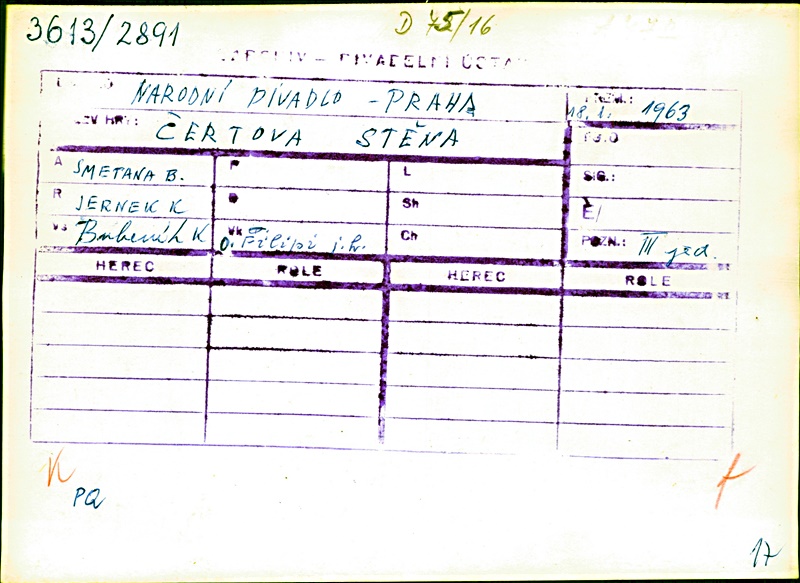 3613/2891
D 75/16
DIVADELNÍ ÚSTAV
NÁRODNÍ DIVADLO - PRAHA
PREM.: 18. 1. 1963
NÁZEV HRY: ČERTOVA STĚNA
A SMETANA B. P L SIG.:
R JERNEK K D Sh Č/
VS Bubeník K Vk O. Filipi j.h. Ch POZN.: III jed.
HEREC ROLE HEREC ROLE
K
PQ
17